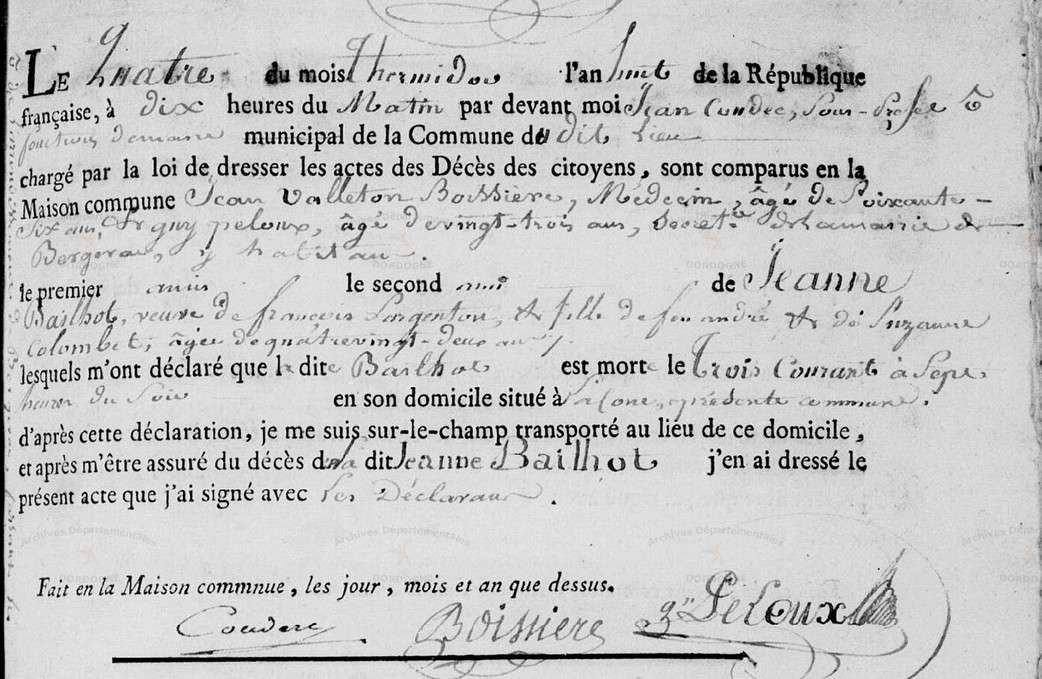 LE Quatre du mois Thermidor l'an huit de la République
française, à dix heures du Matin par devant moi Jean Coudec, Sous-Prefe &
fonctions demaire municipal de la Commune du dit Lieu
chargé par la loi de dresser les actes des Décès des citoyens, sont comparus en la
Maison commune Jean Valleton Boissiere, Médecin, âgé de Soixante-
Six ans, guy peloux, âgé devingt-trois ans, Secret.re delamairie de
Bergerac, y habitans.
le premier amis le second ami de Jeanne
Bailhot, veuve de françois Largenton, & fille de feu andré & de Suzanne
Colombet; âgée dequatrevingt-deux ans
lesquels m'ont déclaré que la dite Bailhot est morte le Trois Courant à Sept
heures du Soir en son domicile situé à présente commune.
d'après cette déclaration, je me suis sur-le-champ transporté au lieu de ce domicile,
et après m'être assuré du décès de la dite Jeanne Bailhot j'en ai dressé le
présent acte que j'ai signé avec Les Déclarans.
Fait en la Maison commnue, les jour, mois et an que dessus.
Couderc Boissiere gui Peloux